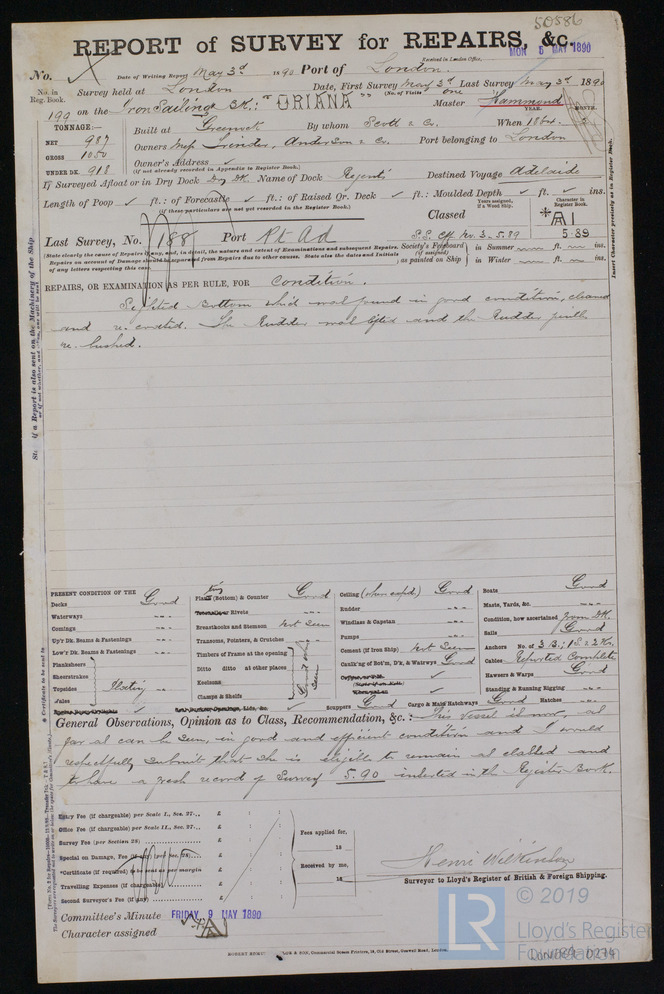 50586
REPORT of SURVEY for REPAIRS, &c.
MON 5 MAY 1890
Received in London Office,
No.
Date of Writing Report May 3d 1890 Port of London.
No. in Reg. Book.
Survey held at London Date, First Survey May 3d Last Survey May 3d 1890
(No. of Visits one
199 on the Iron Sailing BK: "ORIANA" Master Hammond
TONNAGE:—
NET 987
GROSS 1050
UNDER DK. 918
Built at Greenock By whom Scott & Co. When 1864. 2
YEAR. MONTH.
Owners Messrs Trinder, Anderson & Co. Port belonging to London
Owner's Address
(if not already recorded in Appendix to Register Book.)
If Surveyed Afloat or in Dry Dock Dry Dk. Name of Dock Regents Destined Voyage Adelaide
Length of Poop ft.: of Forecastle ft.: of Raised Qr. Deck ft.: Moulded Depth ft. ins.
(if these particulars are not yet recorded in the Register Book.)
Classed
Years assigned, if a Wood Ship.
Character in Register Book.
*A1
5.89
Last Survey, No. 188 Port Pt Ad
S.S. No. 3 - 5.89
(State clearly the cause of Repairs if any, and, in detail, the nature and extent of Examinations and subsequent Repairs.
Repairs on account of Damage should be separated from Repairs due to other causes. State also the dates and Initials
of any letters respecting this case.
Society's Freeboard (if assigned) as painted on Ship
in Summer ft. ins.
in Winter ft. ins.
REPAIRS, OR EXAMINATION AS PER RULE, FOR Condition.
Sighted Bottom which was found in good condition, cleaned
and re.coated. The Rudder was lifted and the Rudder pintles
re.bushed.
PRESENT CONDITION OF THE
Decks Good
Waterways
Comings
Up'r Dk. Beams & Fastenings
Low'r Dk. Beams & Fastenings
Planksheers
Sheerstrakes
Topsides
Wales
Plating
(Bottom) & Counter Good
Rivets
Breasthooks and Stemson Not Seen
Transoms, Pointers, & Crutches
Timbers of Frame at the opening
Ditto ditto at other places
Keelsons
Clamps & Shelfs
Ceiling (where exposed.) Good
Rudder
Windlass & Capstan
Pumps
Cement (if Iron Ship) Not Seen
Caulk'ng of Bot'm, D'k, & Waterways Good
Scuppers Good Cargo & Main Hatchways Good Hatches
Boats Good
Masts, Yards, &c.
Condition, how ascertained from Dk.
Sails Good
Anchors No. of 3 B.; 1 S. & 2 K.
Cables Reported Complete
Hawsers & Warps Good
Standing & Running Rigging
General Observations, Opinion as to Class, Recommendation, &c.: This Vessel is now, as
far as can be seen, in good and efficient condition and I would
respectfully submit that she is eligible to remain as classed and
to have a fresh record of Survey 5.90 inserted in the Register Book.
Entry Fee (if chargeable) per Scale I., Sec. 27... £ : :
Office Fee (if chargeable) per Scale II., Sec. 27... £ : :
Survey Fee (per Section 28) £ : :
Special on Damage, Fee (if any) per Sec. 28) £ : :
*Certificate (if required) to be sent as per margin
Travelling Expenses (if chargeable) £ : :
Second Surveyor's Fee (if any) £ : :
Fees applied for,
18
Received by me,
18
Henri Wilkinson
Surveyor to Lloyd's Register of British & Foreign Shipping.
Committee's Minute FRIDAY 9 MAY 1890
Character assigned *A1
LR
© 2019
Lloyd's Register
Foundation